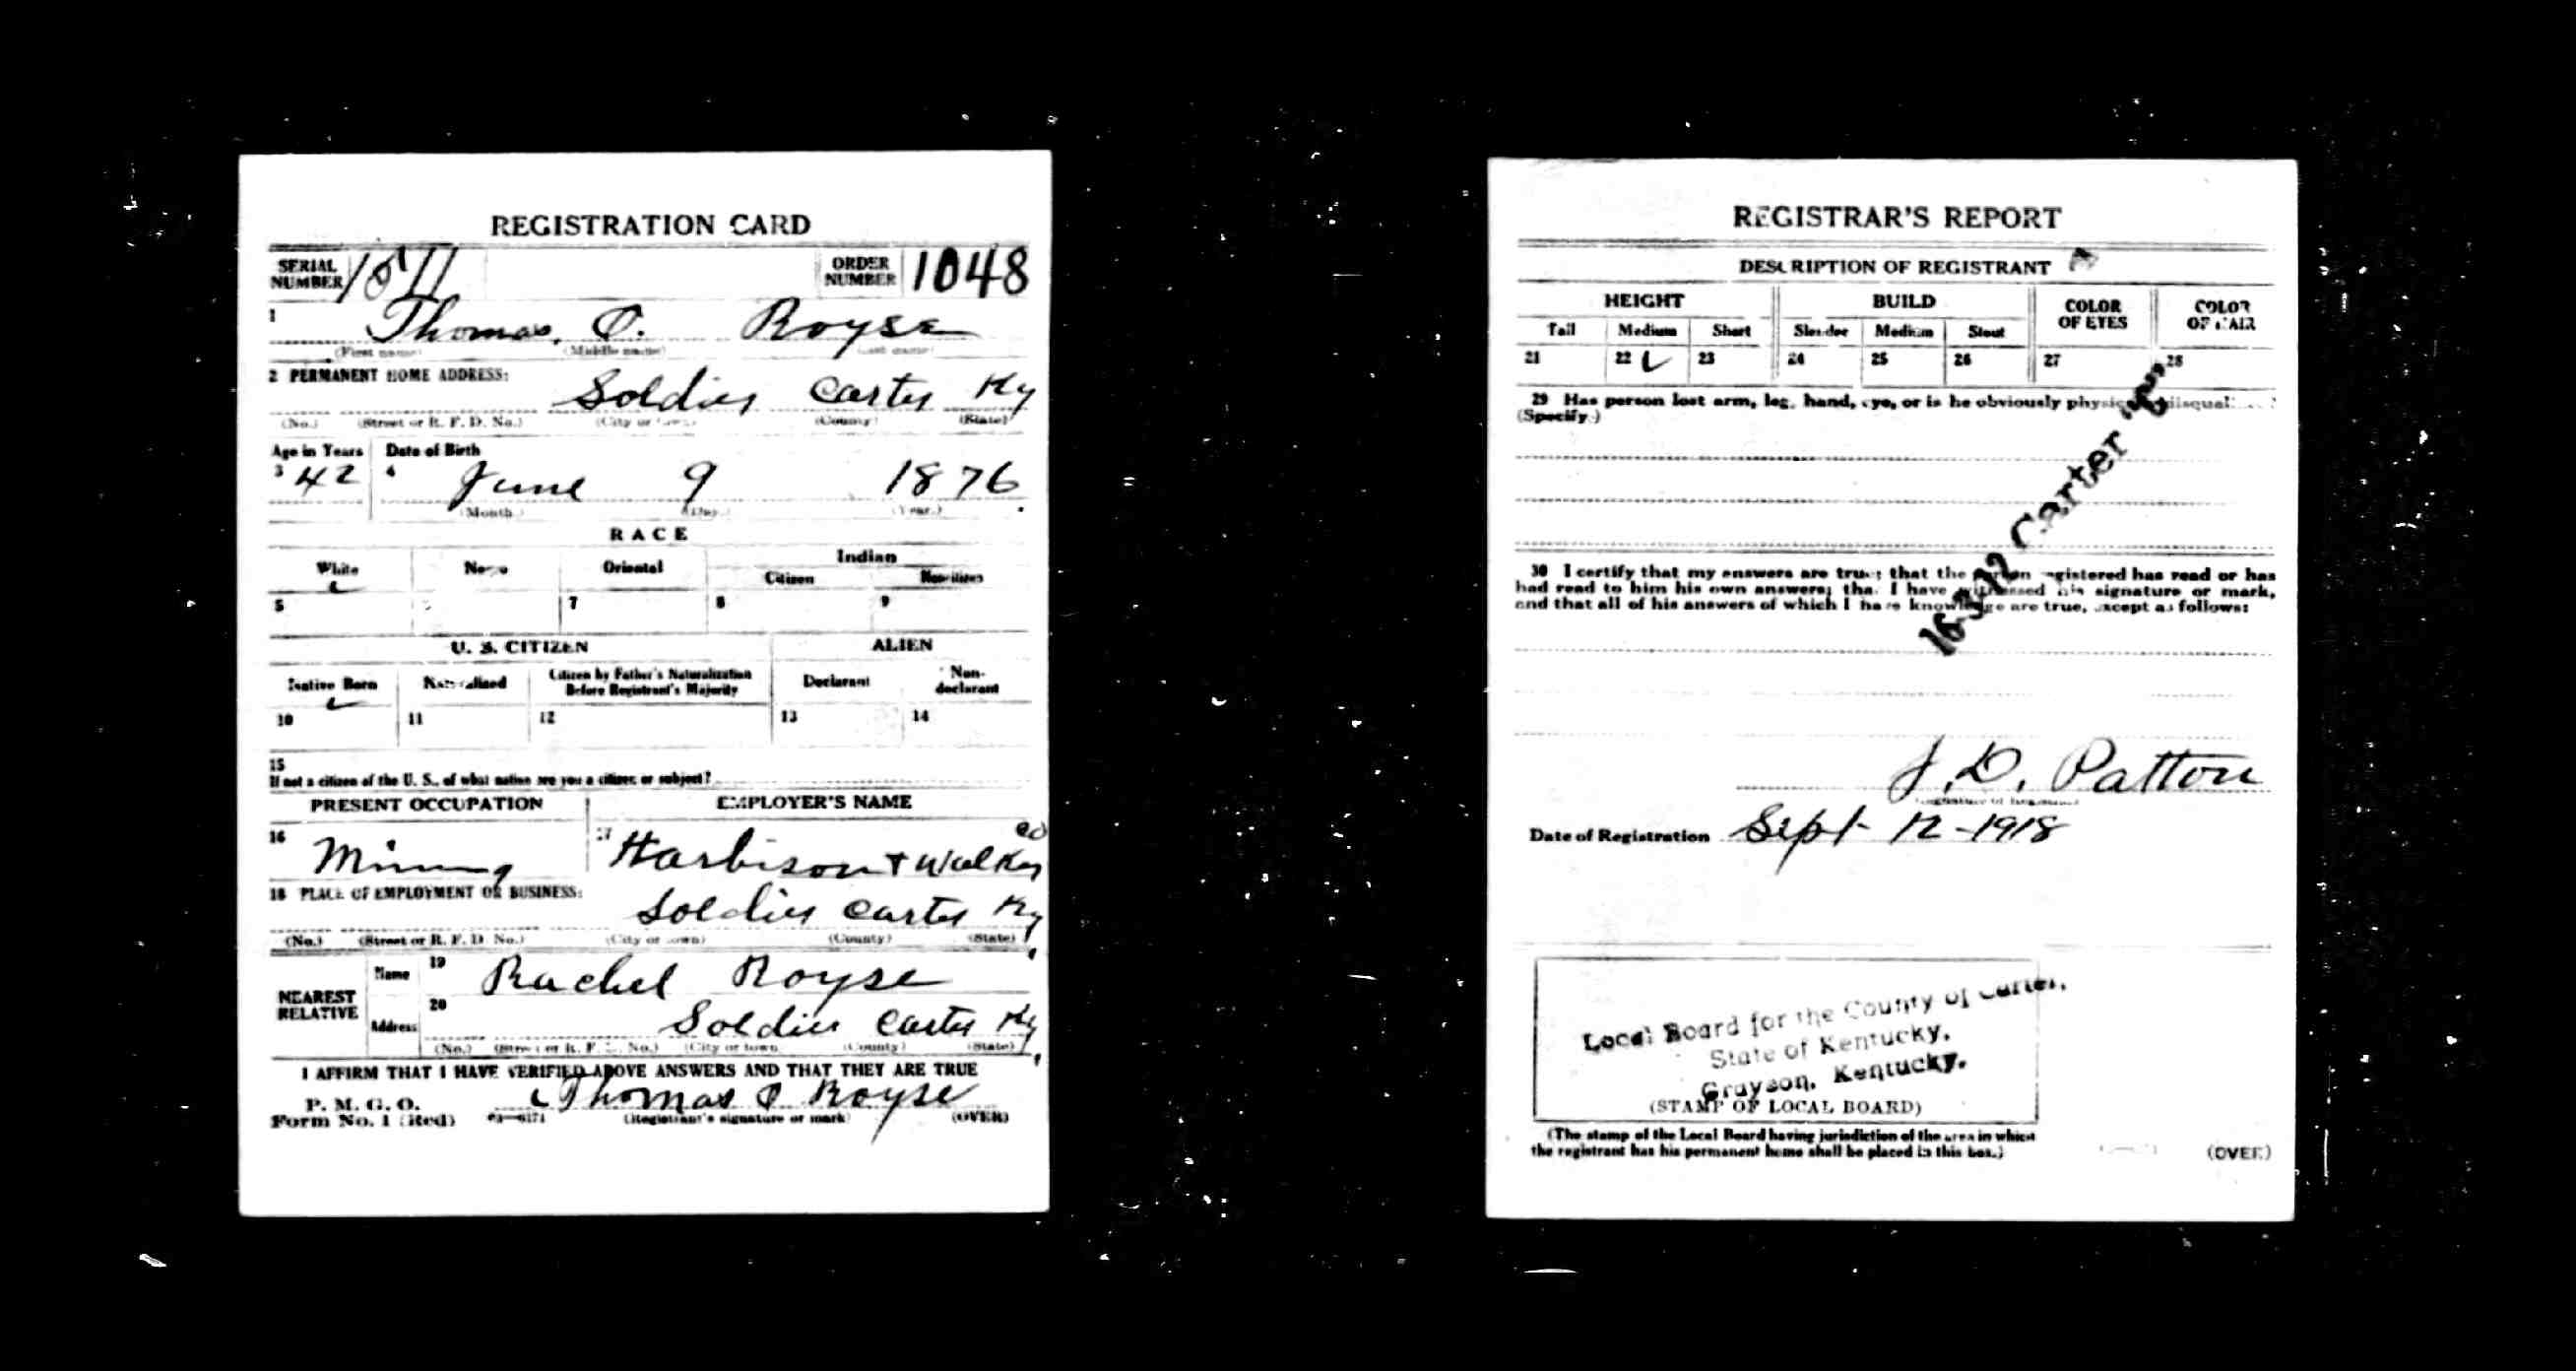 REGISTRATION CARD
SERIAL NUMBER 1511 ORDER NUMBER 1048
1 Thomas. O. Royse
(First name) (Middle name) (Last name)
2 PERMANENT HOME ADDRESS:
Soldier Carter Ky
(No.) (Street or R. F. D. No.) (City or town) (County) (State)
Age in Years Date of Birth
3 42 4 June 9 1876
(Month.) (Day.) (Year.)
RACE
White Negro Oriental Indian
Citizen Noncitizen
5 7 8 9
U. S. CITIZEN ALIEN
Native Born Naturalized Citizen by Father's Naturalization Before Registrant's Majority Declarant Non-declarant
10 11 12 13 14
15
If not a citizen of the U. S., of what nation are you a citizen or subject?
PRESENT OCCUPATION EMPLOYER'S NAME
16 Mining 17 Harbison + Walker Co
18 PLACE OF EMPLOYMENT OR BUSINESS:
Soldier Carter Ky
(No.) (Street or R. F. D. No.) (City or town) (County) (State)
NEAREST RELATIVE
Name 19 Rachel Royse
Address 20 Soldier Carter Ky
(No.) (Street or R. F. D. No.) (City or town) (County) (State)
I AFFIRM THAT I HAVE VERIFIED ABOVE ANSWERS AND THAT THEY ARE TRUE
P. M. G. O.
Form No. 1 (Red) Thomas O Royse
(Registrant's signature or mark) (OVER)
REGISTRAR'S REPORT
DESCRIPTION OF REGISTRANT
HEIGHT BUILD COLOR OF EYES COLOR OF HAIR
Tall Medium Short Slender Medium Stout
21 22 23 24 25 26 27 28
29 Has person lost arm, leg, hand, eye, or is he obviously physically disqualified?
(Specify.)
16-3-12 Carter "C"
30 I certify that my answers are true; that the person registered has read or has
had read to him his own answers; that I have witnessed his signature or mark,
and that all of his answers of which I have knowledge are true, except as follows:
J. D. Patton
(Signature of Registrar)
Date of Registration Sept- 12-1918
Local Board for the County of Carter,
State of Kentucky,
Grayson, Kentucky.
(STAMP OF LOCAL BOARD)
(The stamp of the Local Board having jurisdiction of the area in which
the registrant has his permanent home shall be placed in this box.)
(OVER)